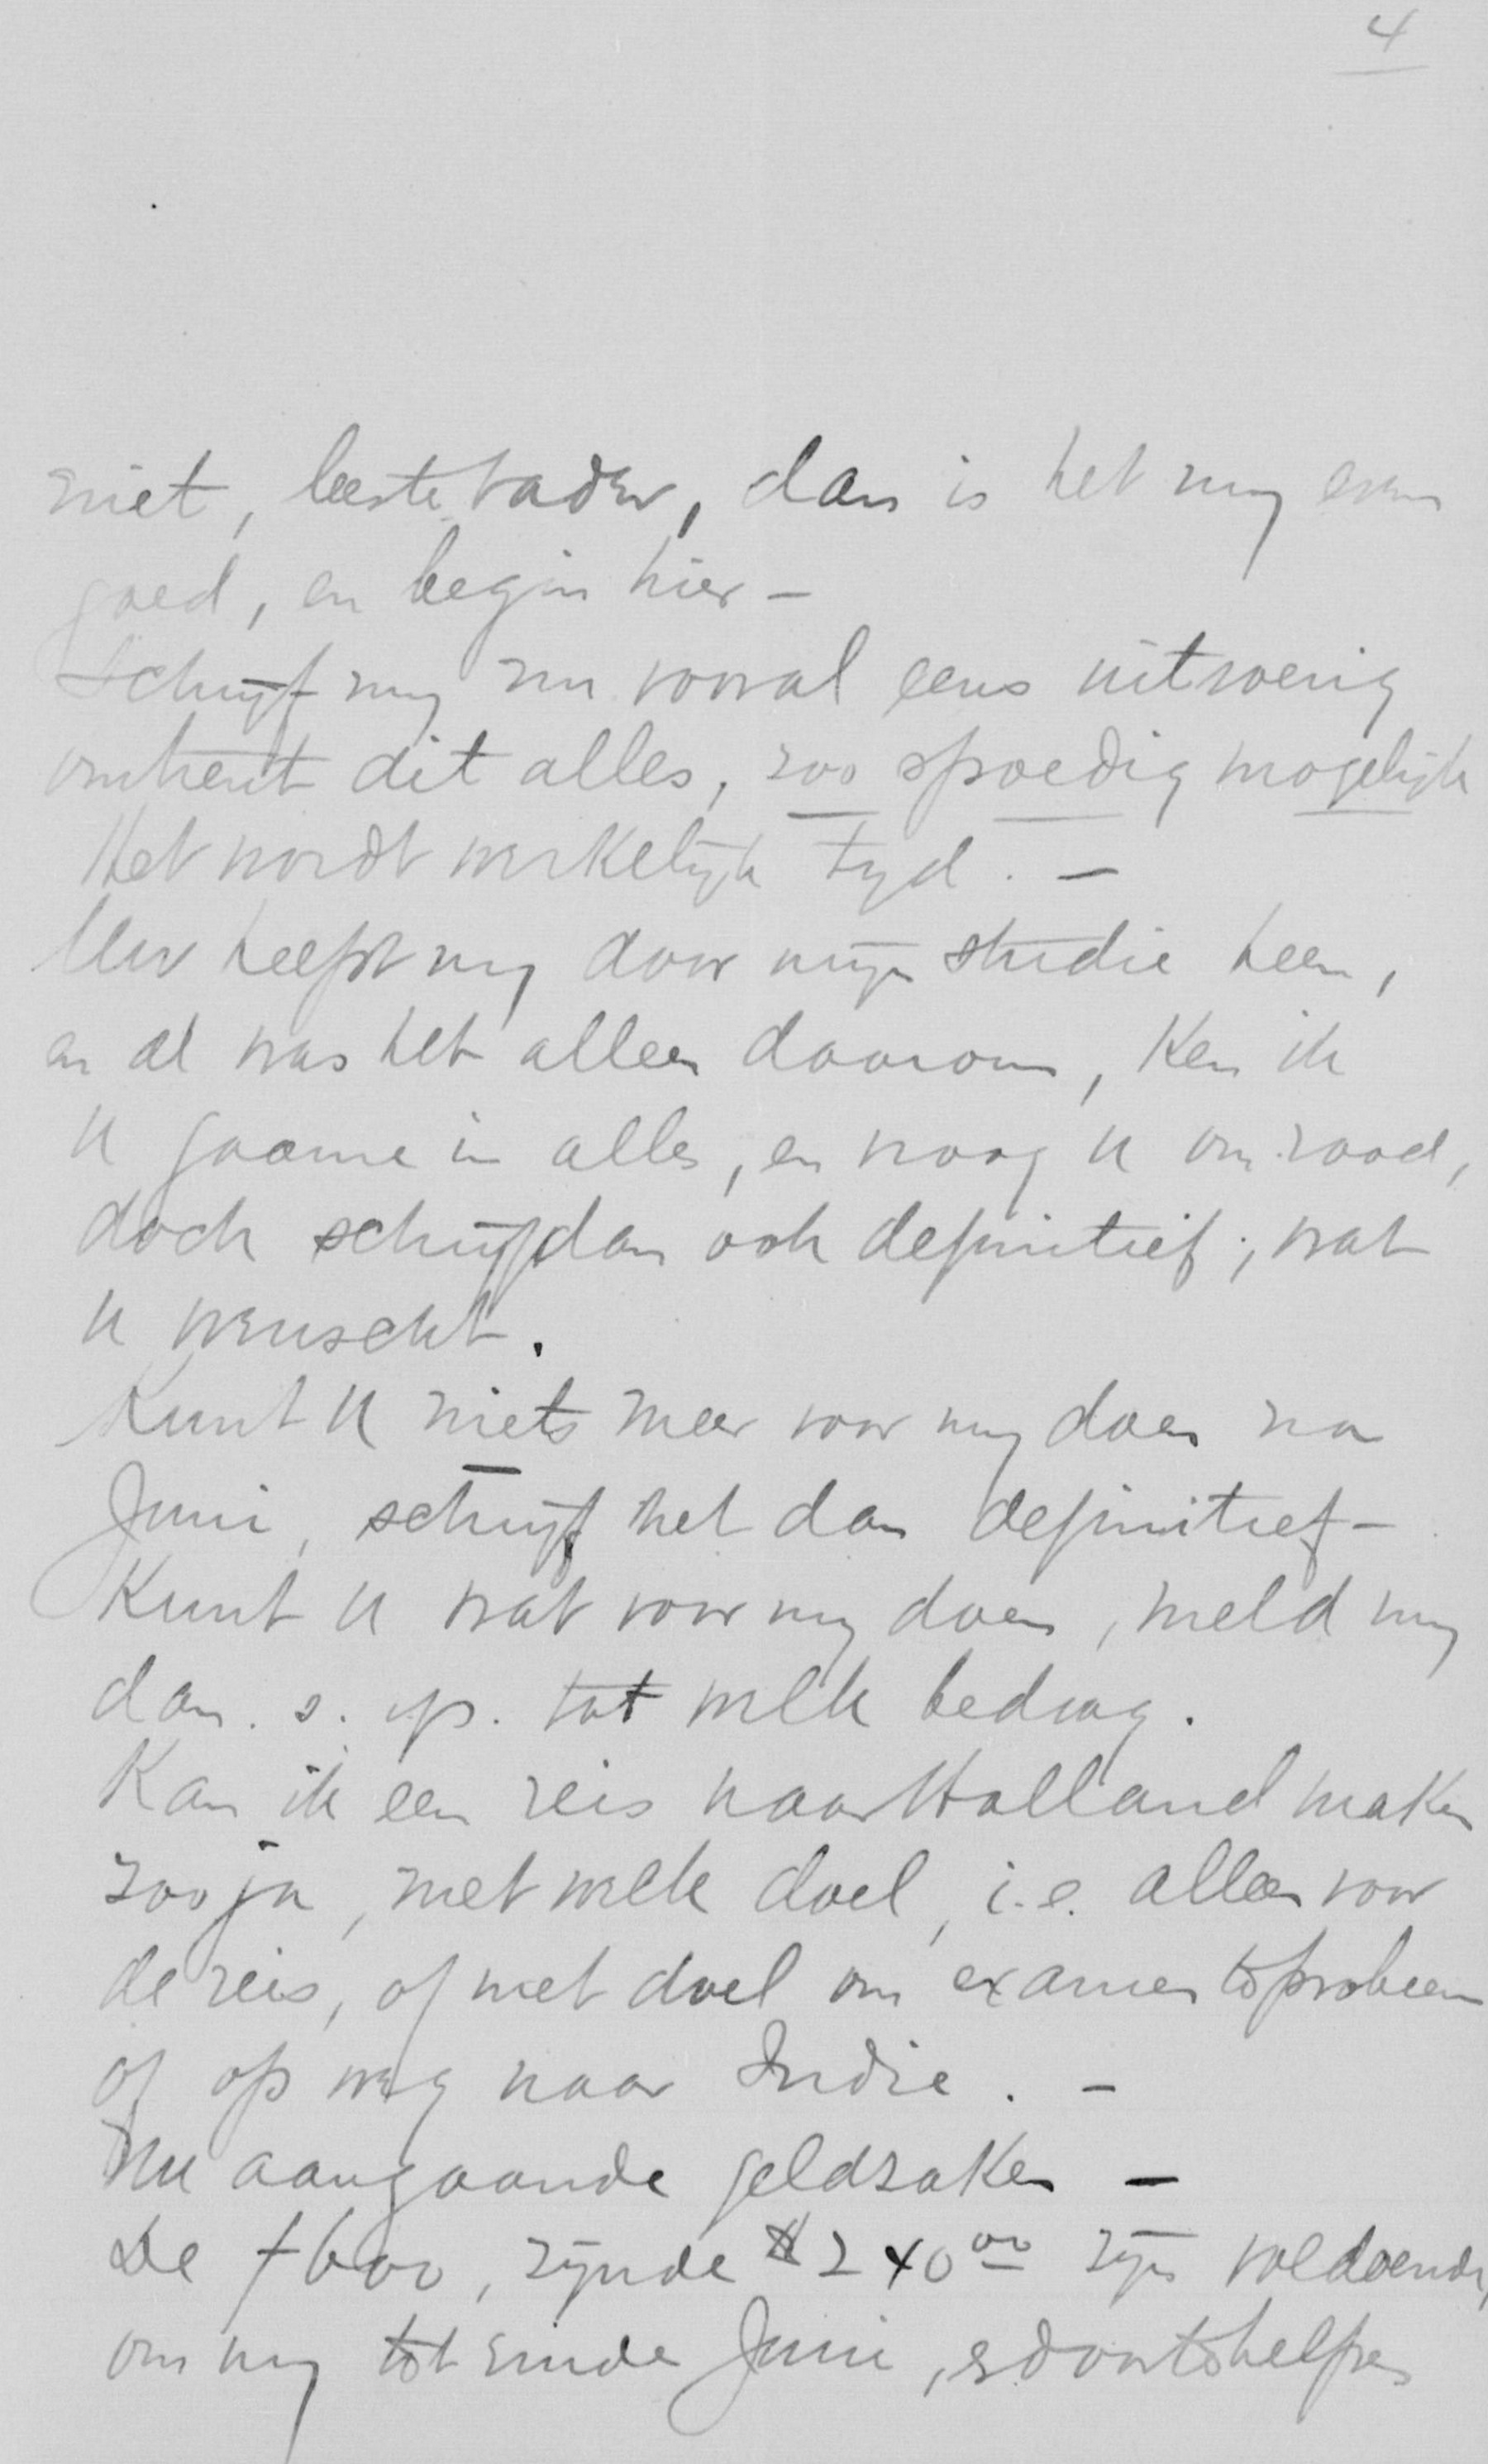 4
niet, beste vader, dan is het my even
goed, en begin hier –
Schryf my nu vooral eens uitvoerig
omtrent dit alles, zoo spoedig mogelijk
Het wordt werkelijk tyd. –
Uw heeft my door mijn studie heen,
en al was het alleen daarom, ken ik
u gaarne in alles, en vraag u om raad,
doch schrijf dan ook definitief; wat
u wenscht.
Kunt U niets meer voor my doen na
Juni, schrijf het dan definitief –
Kunt U wat voor my doen, meld my
dan. s. vp. tot welk bedrag.
Kan ik een reis naar Holland maken
zoo ja, met welk doel, i.e. alleen voor
de reis, of met doel om examen te probeeren
of op weg naar Indie. –
Nu aangaande geldzaken –
De f 600, zynde $ 240 00 zyn voldoende,
om my tot einde Juni, door te helpen